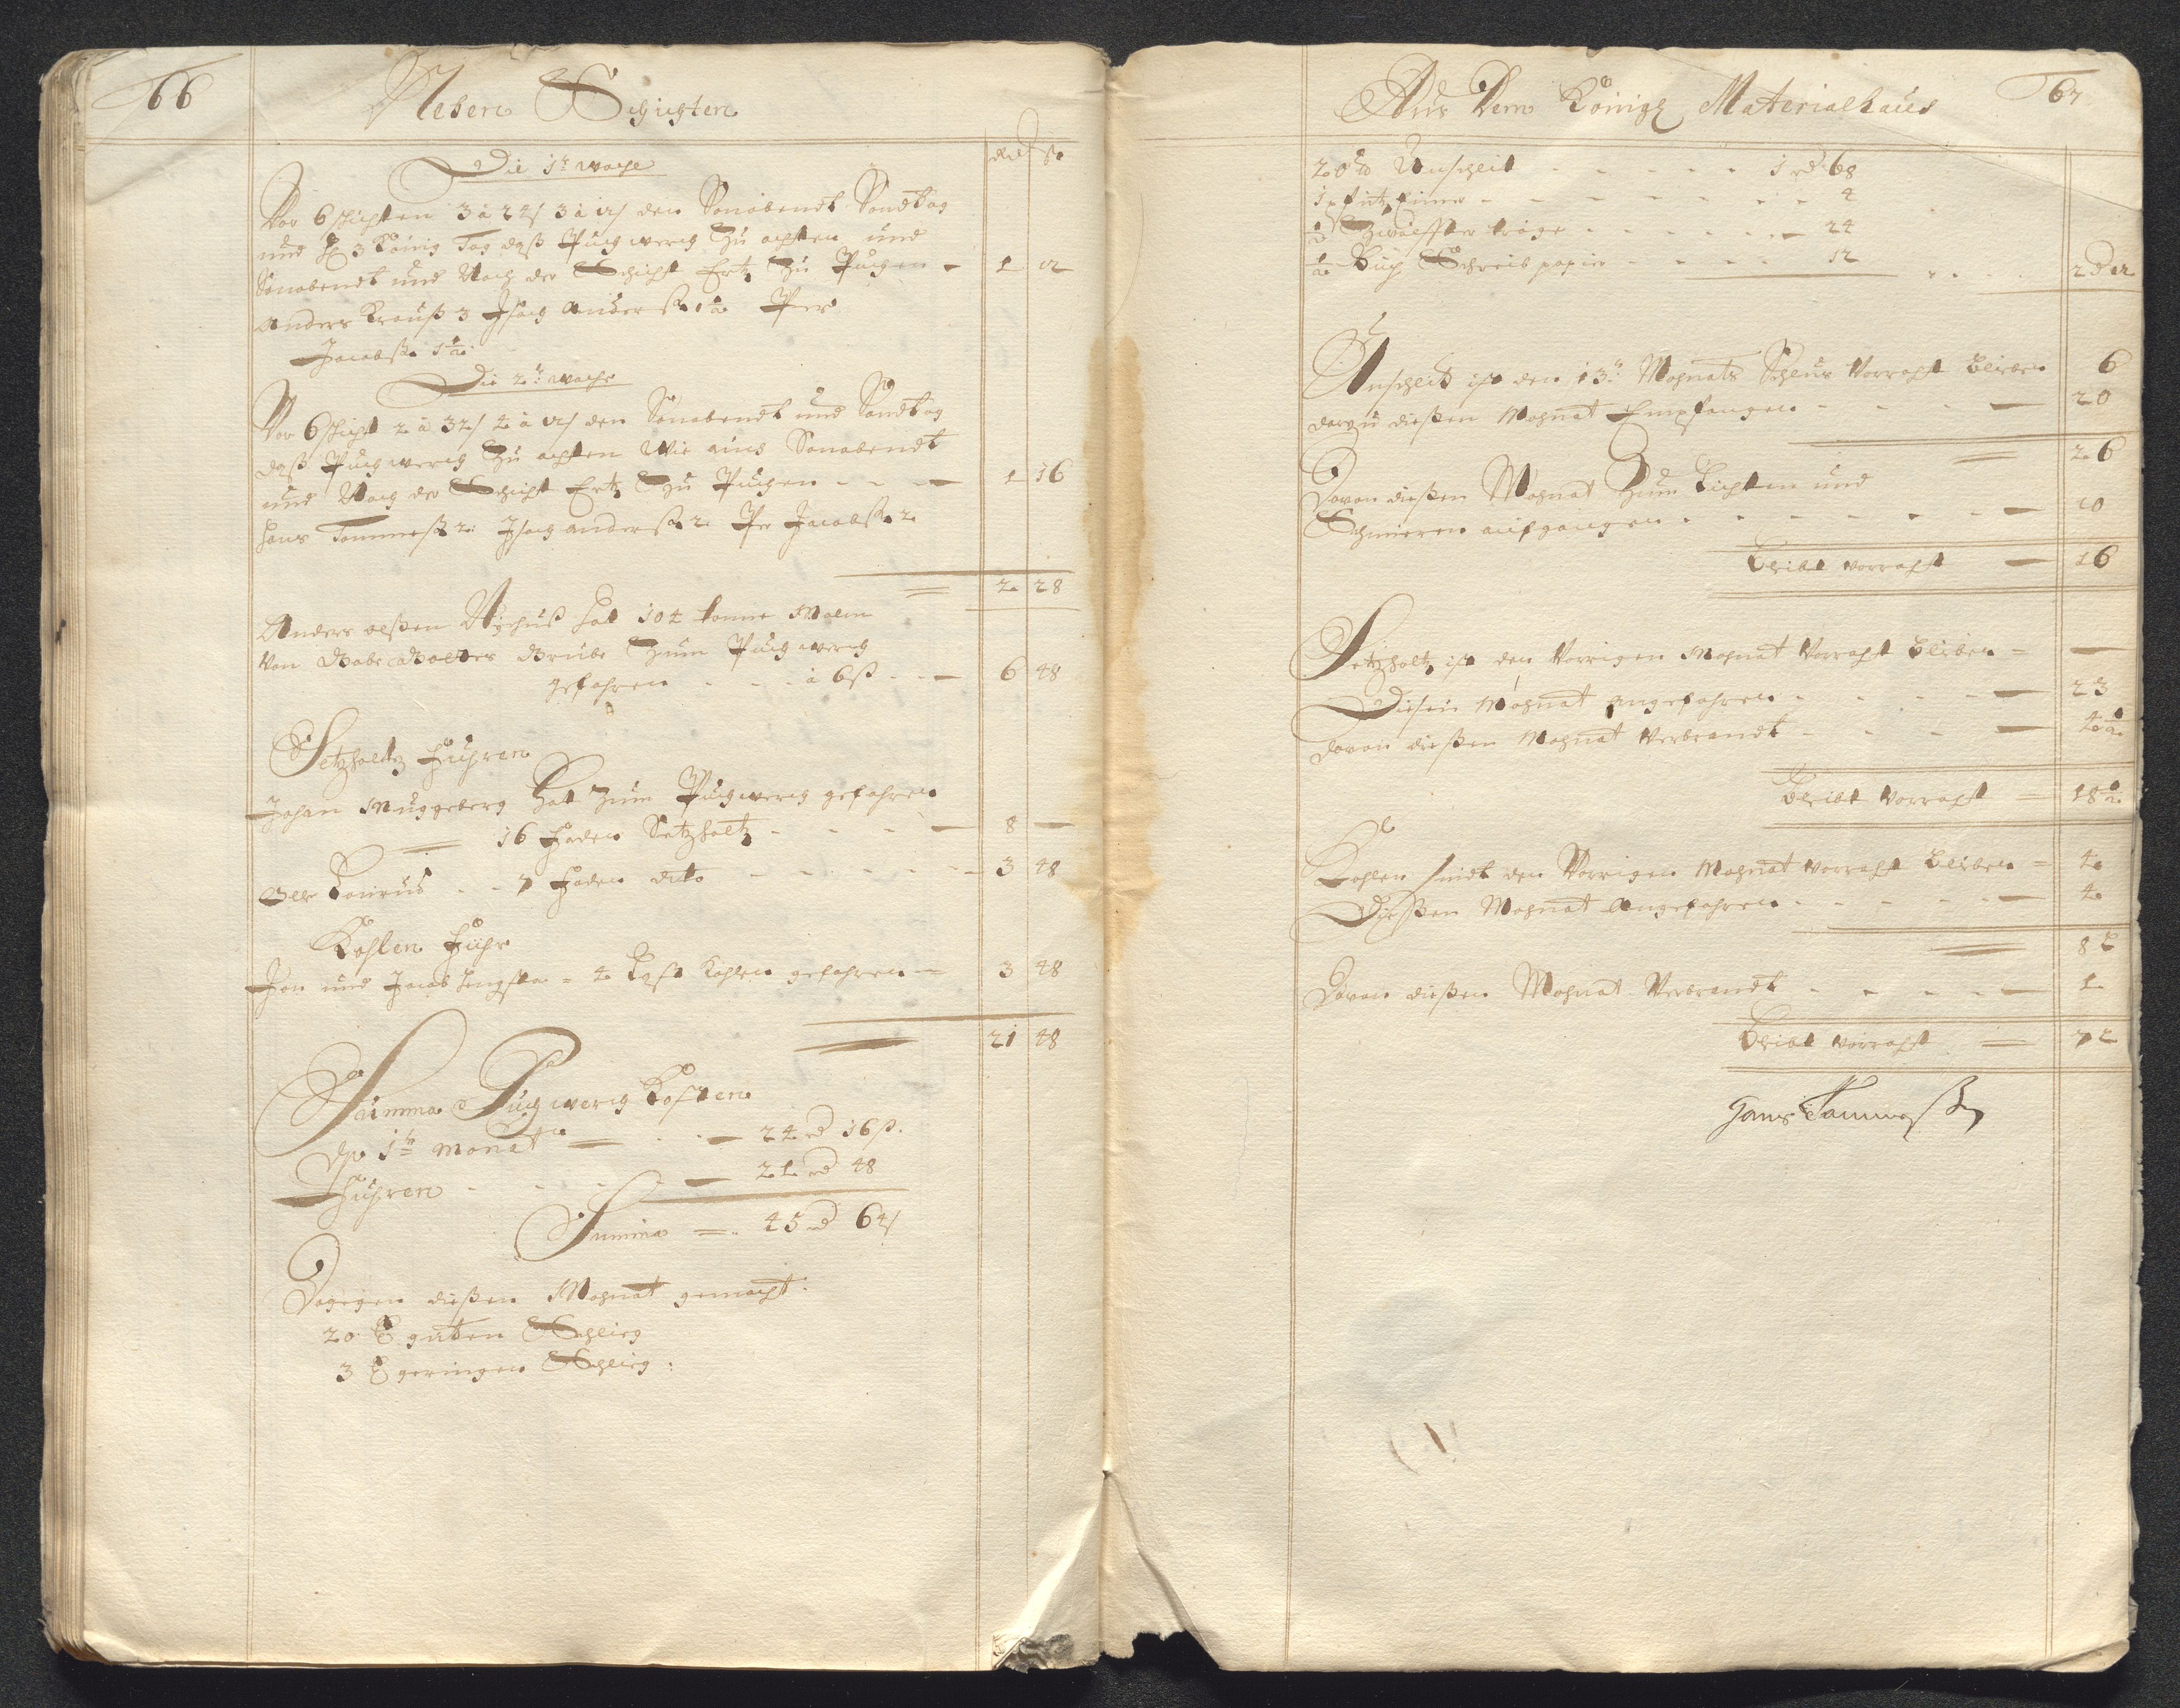 66
Neben Schichten
Rd ß
Die 1te woche
Vor 6 schichten 3 à 24/ 3 à 12/ den Sonabendt Sondtag
und H 3 König Tag daß Puchwerch Zu achten und
Sonabendt und Nach der Schicht Ertz Zu Puchen – 1 12
Anders Krauß 3 Jsach Anderß 1½ Per
Jacobß 1½
Die 2te woche
Vor 6 schicht 2 à 32/ 4 à 12/ den Sonabendt und Sondtag
daß Puchwerch Zu achten Wie auch Sonabendt
und Nach der Schicht Ertz Zu Puchen – – – 1 16
Hans Tommeß 2 Jsach Anderß 2 Per Jacobß 2
2 28
Anders olßen hat 104 tonne Malm
Von Grube Zum Puchwerch
gefahren – – à 6 ß – – 6 48
Setzholtz Fuhren
Johan Muggeberg Hat Zum Puchwerch gefahren
16 Faden Setzholtz – – – – 8 –
Olle – – 7 Faden dito – – – – 3 48
Kohlen Fuhr
Jon und Jacob = 4 Last Kohlen gefahren = 3 48
21 48
Summa Puchwerch Kosten
dho 1te Monat – – 24 rd 16 ß.
Fuhren – – – – 21 rd 48
Summa =. 45 rd 64/
Dagegen dießen Mohnat gemacht:
20 guten Schlieg
3 geringen Schlieg:
67
Aus Dem Königl Materialhaus
20 ℔ Unschlit – – – – – 1 rd 68
1 pfütz Eimer – – – – – – 4
½ Zwölffter tröge – – – – – 24
½ Buch Schreib papier – – – – 12
2 rd 12
Unschlit ist den 13te Mohnats Schlus Vorraht bliben 6
darzu dießen Mohnat Empfangen – – – – 20
26
Davon dießen Mohnat Zum Lichten und
Schmieren aufgangen – – – – – – 10
Blibt vorraht – 16
Setzholtz ist den Vorrigen Mohnat Vorraht bliben = –
Diesen Mohnat angefahren – – – – 23
davon dießen Mohnat Verbrandt – – – – 4½
Blibt vorraht = 18½
Kohlen sindt den Vorrigen Mohnat vorraht bliben = 4
Dießen Mohnat Angefahren – – – – – 4
8 L
Davon dießen Mohnat Verbrandt – – – – 1
Blibt vorraht = 7 L
Hans Tammeßen